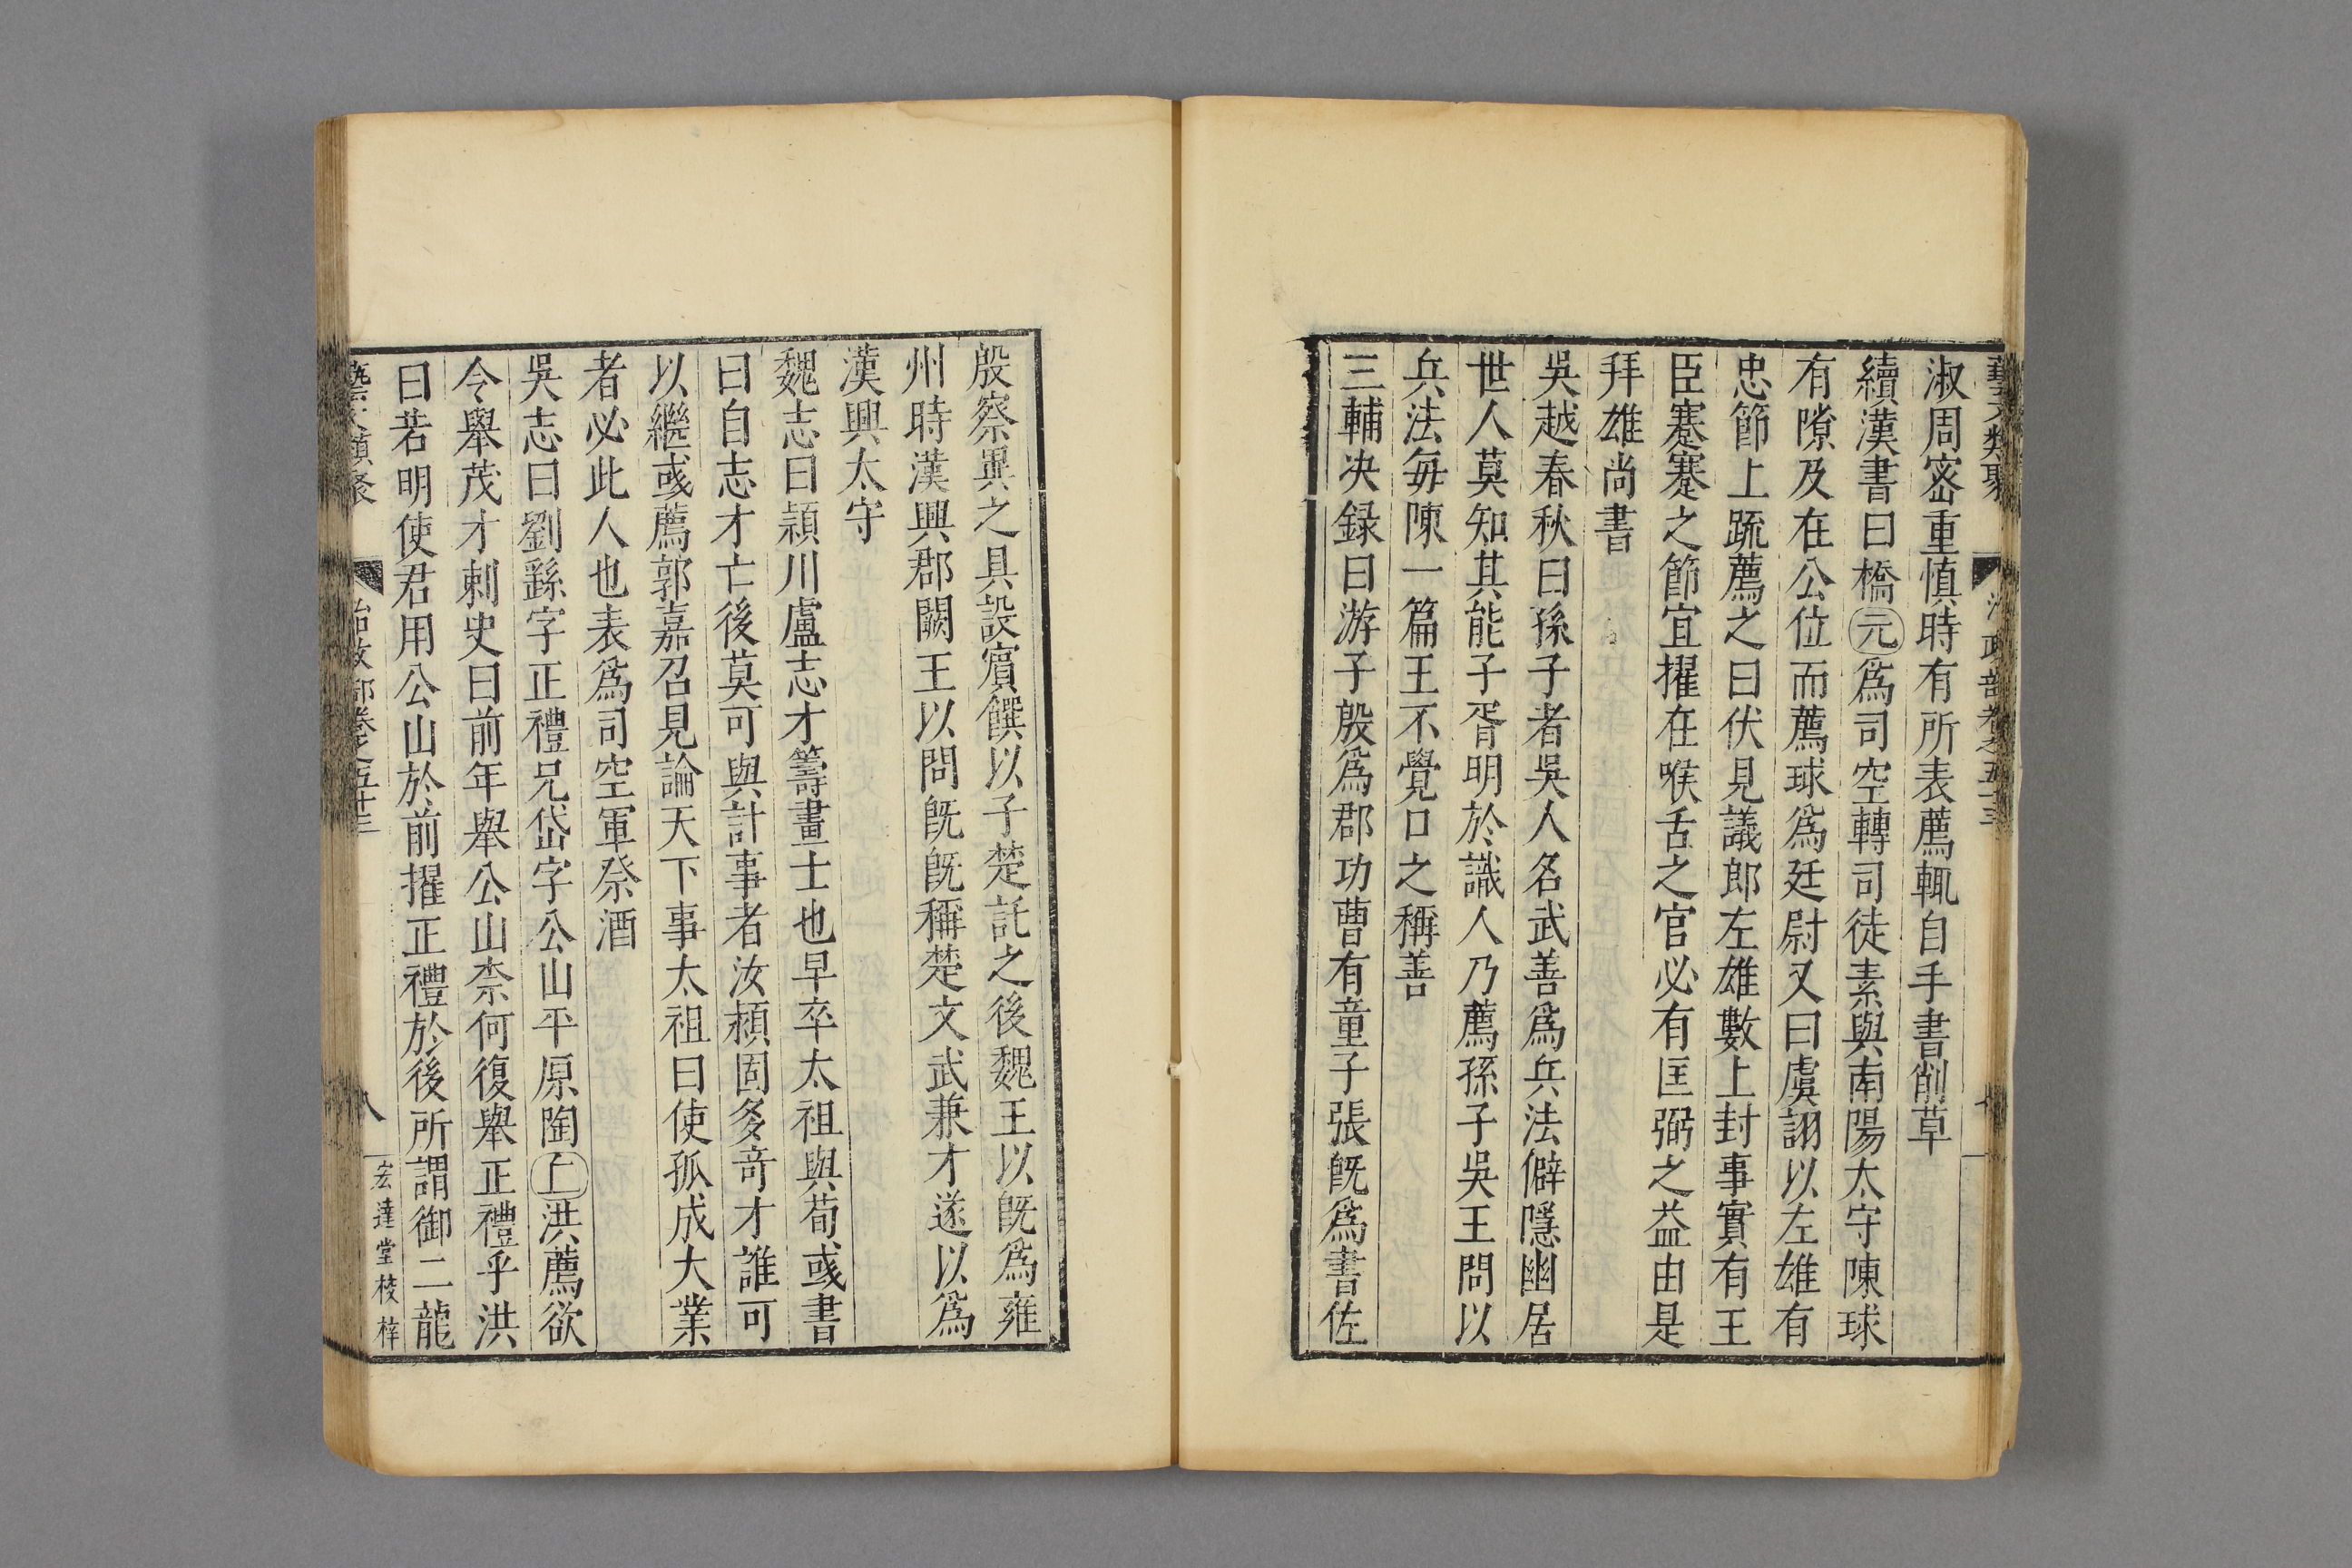 淑周宻重慎時有所表薦輒自手書削草
續漢書曰橋元爲司空轉司徒素與南陽太守陳球
有隙及在公位而薦球爲廷尉又曰虞詡以左雄有
忠節上䟽薦之曰伏見議郎左雄數上封事實有王
臣蹇蹇之節宜擢在喉舌之官必有匡弼之益由是
拜雄尚書
吳越春秋曰孫子者吳人名武善爲兵法僻隱幽居
世人莫知其能子胥明於識人乃薦孫子吳王問以
兵法每陳一篇王不覺口之稱善
三輔决録曰游子殷爲郡功曹有童子張旣爲書佐
殷察異之具設賓饌以子楚託之後魏王以旣爲雍
州時漢興郡闕王以問旣旣稱楚文武兼才遂以爲
漢興太守
魏志曰潁川盧志才籌畫士也早卒太祖與荀彧書
曰自志才亡後莫可與計事者汝潁固多竒才誰可
以繼彧薦郭嘉召見論天下事太祖曰使孤成大業
者必此人也表爲司空軍祭酒
吳志曰劉繇字正禮兄岱字公山平原陶丘洪薦欲
令舉茂才刺史曰前年舉公山柰何復舉正禮乎洪
曰若明使君用公山於前擢正禮於後所謂御二龍
藝文類聚 治政部卷之五十三 八 宏達堂校梓